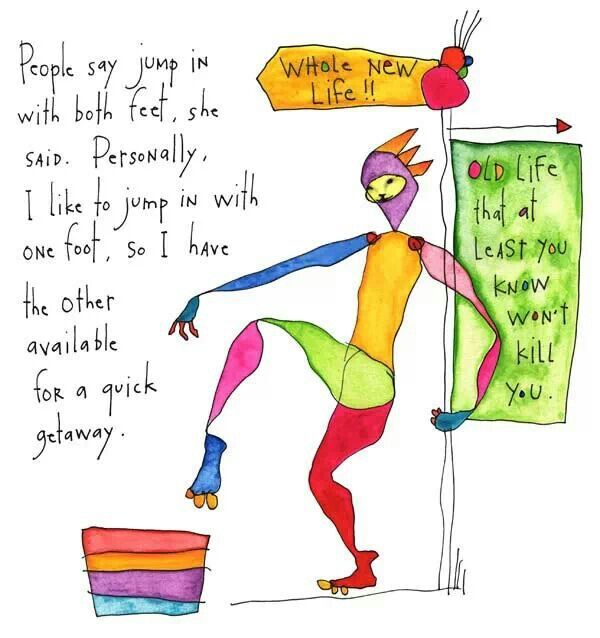 People say jump in
with both feet, she
said. Personally,
I like to jump in with
one foot, so I have
the other
available
for a quick
getaway.
Whole New
Life!!
Old Life
that at
Least you
know
won't
kill
you.